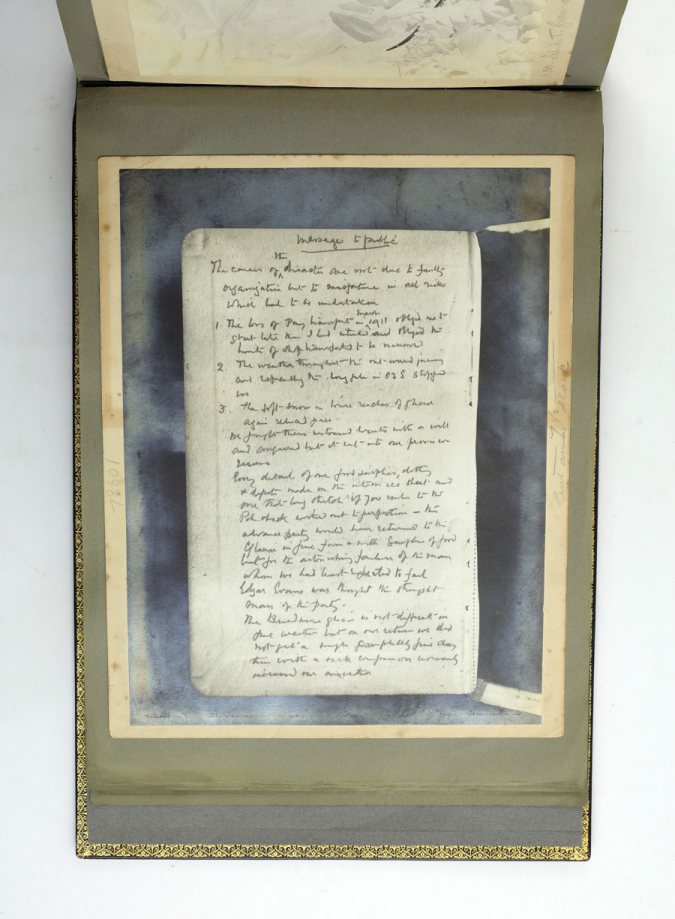 Message to public
the
The causes of disaster are not due to faulty
organisation but to misfortune in all risks
which had to be undertaken
March
1. The loss of Pony transport in 1911 obliged me to
start later than I had intended and obliged the
limits of stuff transported to be narrowed
2. The weather throughout the outward journey
and especially the long gale in 83 S stopped
us
3. The soft snow in lower reaches of glacier
again reduced pace
We fought these untoward events with a will
and conquered but it cut into our provision
reserve
Every detail of our food supplies, clothing
& depots made on the interior ice sheet and
on that long stretch of 700 miles to the
Pole & back worked out to perfection – the
advance party would have returned to the
Glacier in fine form & with surplus of food
but for the astonishing failure of the man
whom we had least expected to fail
Edgar Evans was thought the strongest
man of the party.
The Beardmore glacier is not difficult in
fine weather but on our return we did
not get a single completely fine day
this with a sick companion enormously
increased our anxieties
78601